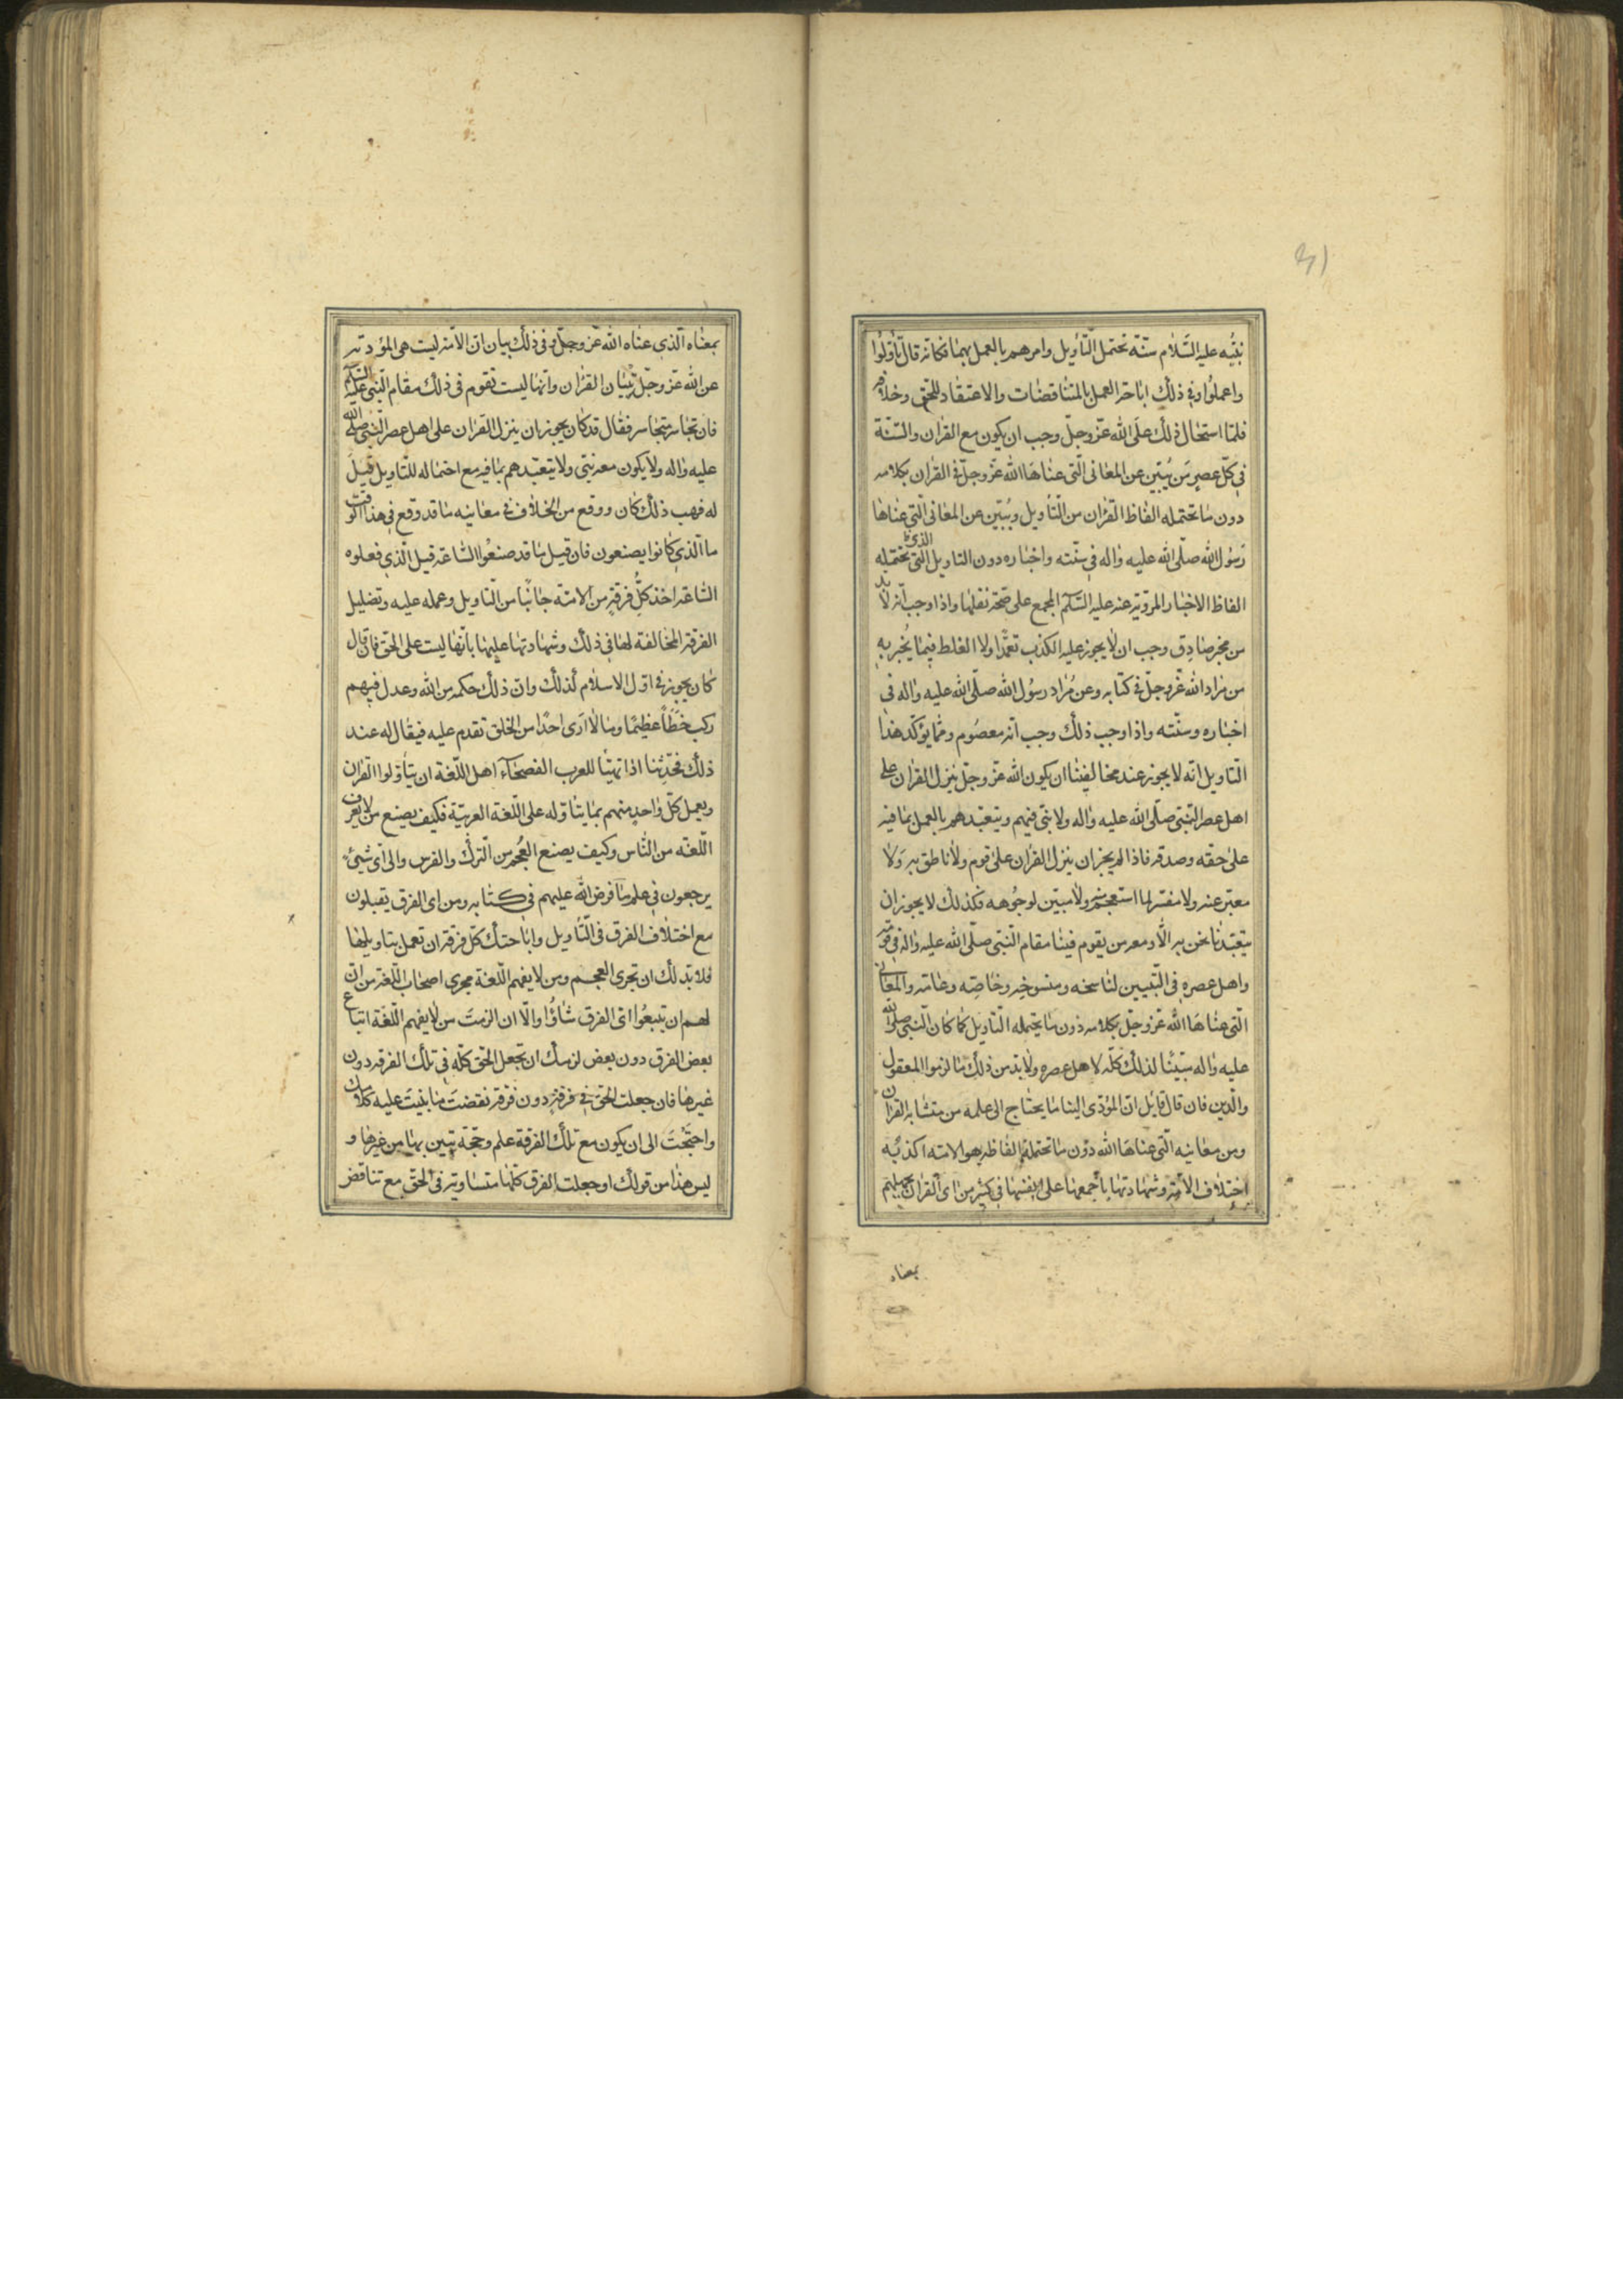 31
نبيّه عليه السّلام سنّة تحتمل التّأويل وامرهم بالعمل بهما فكانه قال تأوّلوا
واعملوا وفي ذلك اباحة العمل بالمتناقضات والاعتقاد للحق وخلافه
فلمّا استحال ذلك على الله عزّ وجلّ وجب ان يكون مع القران والسّنّة
في كلّ عصر من يُبيّن عن المعاني الّتي عناها الله عزّ وجلّ في القران بكلامه
دون ما تحتمله الفاظ القران من التّأويل ويُبيّن عن المعاني الّتي عناها
رسول الله صلّى الله عليه واله في سنّته واخباره دون التاويل الّتي تحتمله
الذي
الفاظ الاخبار المرويّة عنه عليه السّلم المجمع على صحّة نقلها واذا وجب انّه لا بد
من مخبر صادق وجب ان لا يجوز عليه الكذب تعمّدا ولا الغلط فيما يُخبر به
من مراد الله عزّ وجلّ في كتابه وعن مُراد رسول الله صلّى الله عليه واله في
اخباره وسنّته واذا وجب ذلك وجب انّه معصوم وممّا يؤكّد هذا
التّاويل انّه لا يجوز عند مخالفينا ان يكون الله عزّ وجلّ ينزل القران على
اهل عصر النّبيّ صلّى الله عليه واله ولا نبيّ فيهم ويتعبّدهم بالعمل بما فيه
على حقّه وصدقه فاذا لم يجز ان ينزل القران على قوم ولا ناطق به ولا
معبّر عنه ولا مفسّر لما استعجم منه ولا مبيّن لوجوهه فكذلك لا يجوز ان
يتعبّدنا نحن به الّا ومعه من يقوم فينا مقام النّبيّ صلّى الله عليه واله في قومه
واهل عصره في التّبيين لناسخه ومنسوخه وخاصّه وعامّه والمعاني
الّتي عناها الله عزّ وجلّ بكلامه دون ما يحتمله التّاويل كما كان النّبيّ صلّى الله
عليه واله مبيّنا لذلك كلّه لاهل عصره ولا بدّ من ذلك ما لزموا المعقول
والدّين فان قال قايل انّ المؤدّي الينا ما يحتاج الى علمه من متشابه القران
ومن معانيه الّتي عناها الله دون ما تحتمله الفاظه هو الامّة اكذبه
اختلاف الامّة وشهادتها باجمعها على انفسها في كثير من آي القران بجهلهم
بمعناه
بمعناه الّذي عناه الله عزّ وجلّ وفي ذلك بيان انّ الامّة ليست هي المؤدّية
عن الله عزّ وجلّ تبيان القران وانّها ليست تقوم في ذلك مقام النّبيّ عليه السّلم
فان تجاسر متجاسر فقال قد كان يجوز ان ينزل القران على اهل عصر النّبيّ صلّى الله
عليه واله ولا يكون معه نبيّ ولا يتعبّدهم بما فيه مع احتماله للتّاويل قيل
له فهب ذلك كان ووقع من الخلاف في معانيه ما قد وقع في هذا الوقت
ما الّذي كانوا يصنعون فان قيل ما قد صنعوا السّاعة قيل الّذي فعلوه
السّاعة اخذ كلّ فرقة من الامّة جانبًا من التّاويل وعمله عليه وتضليل
الفرقة المخالفة لها في ذلك وشهادتها عليها بانّها ليست على الحق فان قال
كان يجوز في اوّل الاسلام لذلك وانّ ذلك حكمة من الله وعدل فيهم
ركب خطأً عظيمًا وما لا ارى احدًا من الخلق تقدم عليه فيقال له عند
ذلك فحدّثنا اذا تهيّئا للعرب الفصحاء اهل اللّغة ان يتاوّلوا القران
ويعمل كلّ واحد منهم بما يتاوّله على اللّغة العربيّة فكيف يصنع من لا يعرف
اللّغة من النّاس وكيف يصنع العُجم من التّرك والفرس والى ايّ شيء
يرجعون في علم ما فرض الله عليهم في كتابه ومن اي الفرق يقبلون
مع اختلاف الفرق في التّأويل واباحتك كلّ فرقة ان تعمل بتاويلها
فلا بدّ لك ان تجري العجم ومن لا يفهم اللّغة مجرى اصحاب اللّغة من انّ
لهم ان يتبعوا ايّ الفرق شاؤا والّا ان الزمت من لا يفهم اللّغة اتباع
بعض الفرق دون بعض لزمك ان تجعل الحقّ كلّه في تلك الفرقه دون
غيرها فان جعلت الحقّ في فرقة دون فرقة نقضت ما بنيت عليه كلامك
واحتَجْتَ الى ان يكون مع تلك الفرقة علم وحجّة تبين بها من غيرها و
ليس هذا من قولك او جعلت الفرق كلّها متساوية في الحق مع تناقض